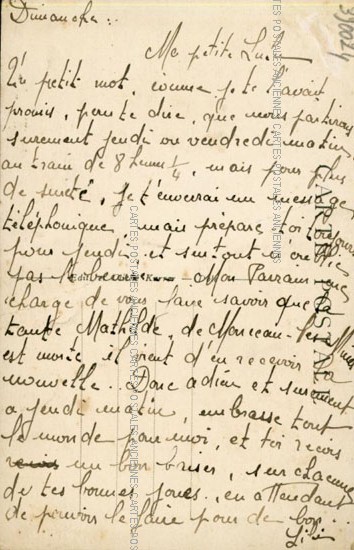 Dimanche..
Ma petite Luce
Un petit mot, comme je te l'avait
promis, pour te dire, que nous partirons
surement jeudi ou vendredi matin
au train de 8 heures 1/4, mais pour plus
de sureté, je t'enverrai un message
téléphonique, mais prépare toi toujours
pour jeudi, et surtout n'oublie
pas l'heure. Mon Parrain me
charge de vous faire savoir que la
tante Mathilde, de Monceau-les-Mines
est morte, il vient d'en recevoir la
nouvelle.. Donc adieu et surement
a jeudi matin, embrasse tout
le monde pour moi, et toi reçois
un bon baiser, sur chacune
de tes bonnes joues, en attendant
de pouvoir le faire pour de bon..
Lili
CARTE POSTALE
390024
CARTES POSTALES ANCIENNES CARTES POSTALES ANCIENNES CARTES POSTALES ANCIENNES